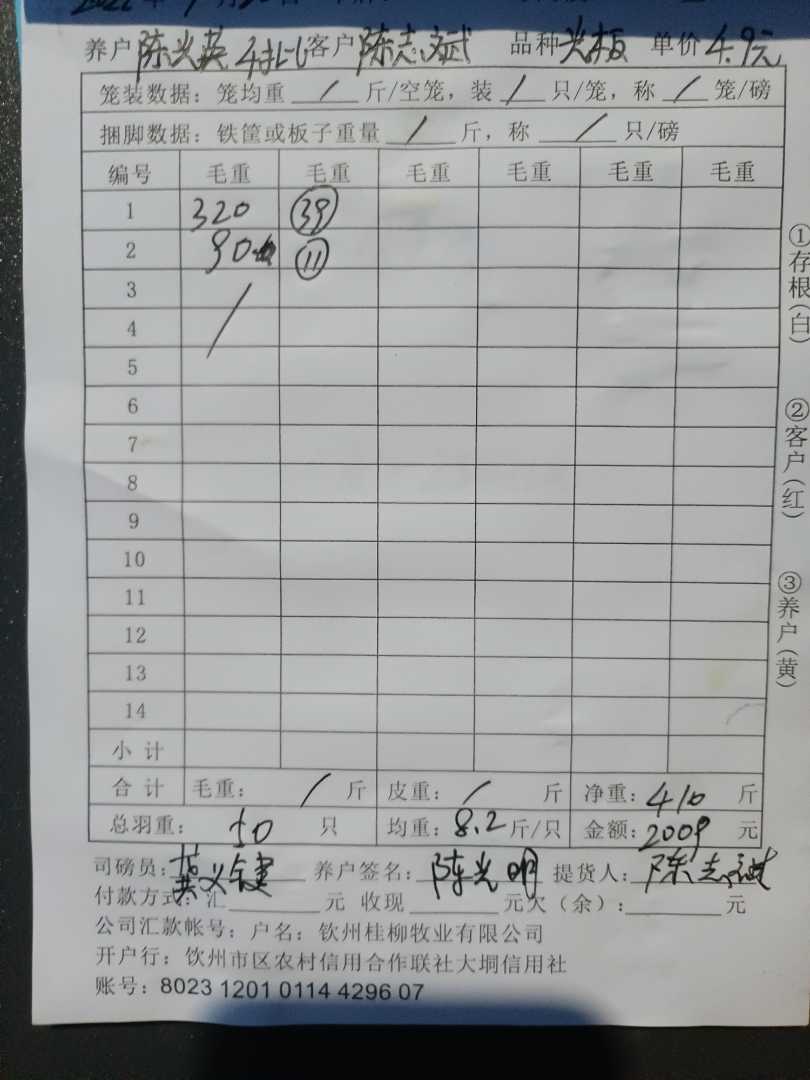 养户 陈兴英 客户 陈志斌 品种 光板 单价 4.9元
笼装数据：笼均重 / 斤/空笼，装 / 只/笼，称 / 笼/磅
捆脚数据：铁筐或板子重量 / 斤，称 / 只/磅
编号 毛重 毛重 毛重 毛重 毛重 毛重
1 320 39
2 90 11
3 /
4
5
6
7
8
9
10
11
12
13
14
小计
合计 毛重： / 斤 皮重： / 斤 净重：410 斤
总羽重： 50 只 均重：8.2 斤/只 金额：2009 元
司磅员： 养户签名：陈光明 提货人：陈志斌
付款方式：汇 元 收现 元欠（余）： 元
公司汇款帐号：户名：钦州桂柳牧业有限公司
开户行：钦州市区农村信用合作联社大垌信用社
账号：8023 1201 0114 4296 07
①存根（白）
②客户（红）
③养户（黄）